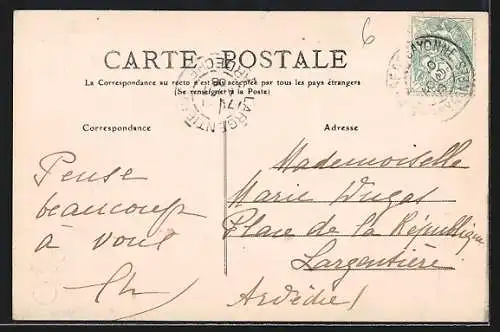 6
CARTE POSTALE
La Correspondance au recto n'est pas acceptée par tous les pays étrangers
(Se renseigner à la Poste)
LARGENTIÈRE
ARDÈCHE
BAYONNE
Correspondance
Adresse
Pense
beaucoup
à vous
Mademoiselle
Marie Dugas
Place de la République
Largentière
Ardèche